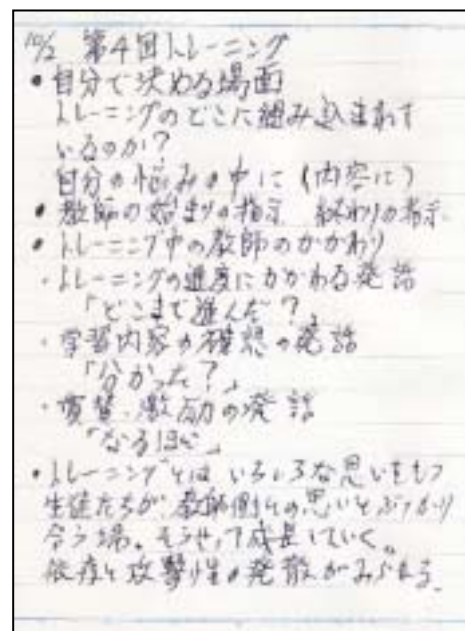 10/2 第4回トレーニング
・自分で決める場面
トレーニングのどこに組み込まれて
いるのか?
自分の悩みの中に(内容に)
・教師の始まりの指示 終わりの指示
・トレーニング中の教師のかかわり
・トレーニングの進度にかかわる発話
「どこまで進んだ?」
・学習内容の確認の発話
「分かった?」
・賞賛、激励の発話
「なるほど」
・トレーニングとは いろいろな思いをもつ
生徒たちが、教師側との思いとぶつかり
合う場。そうやって成長していく。
依存と攻撃性の発散がみられる。